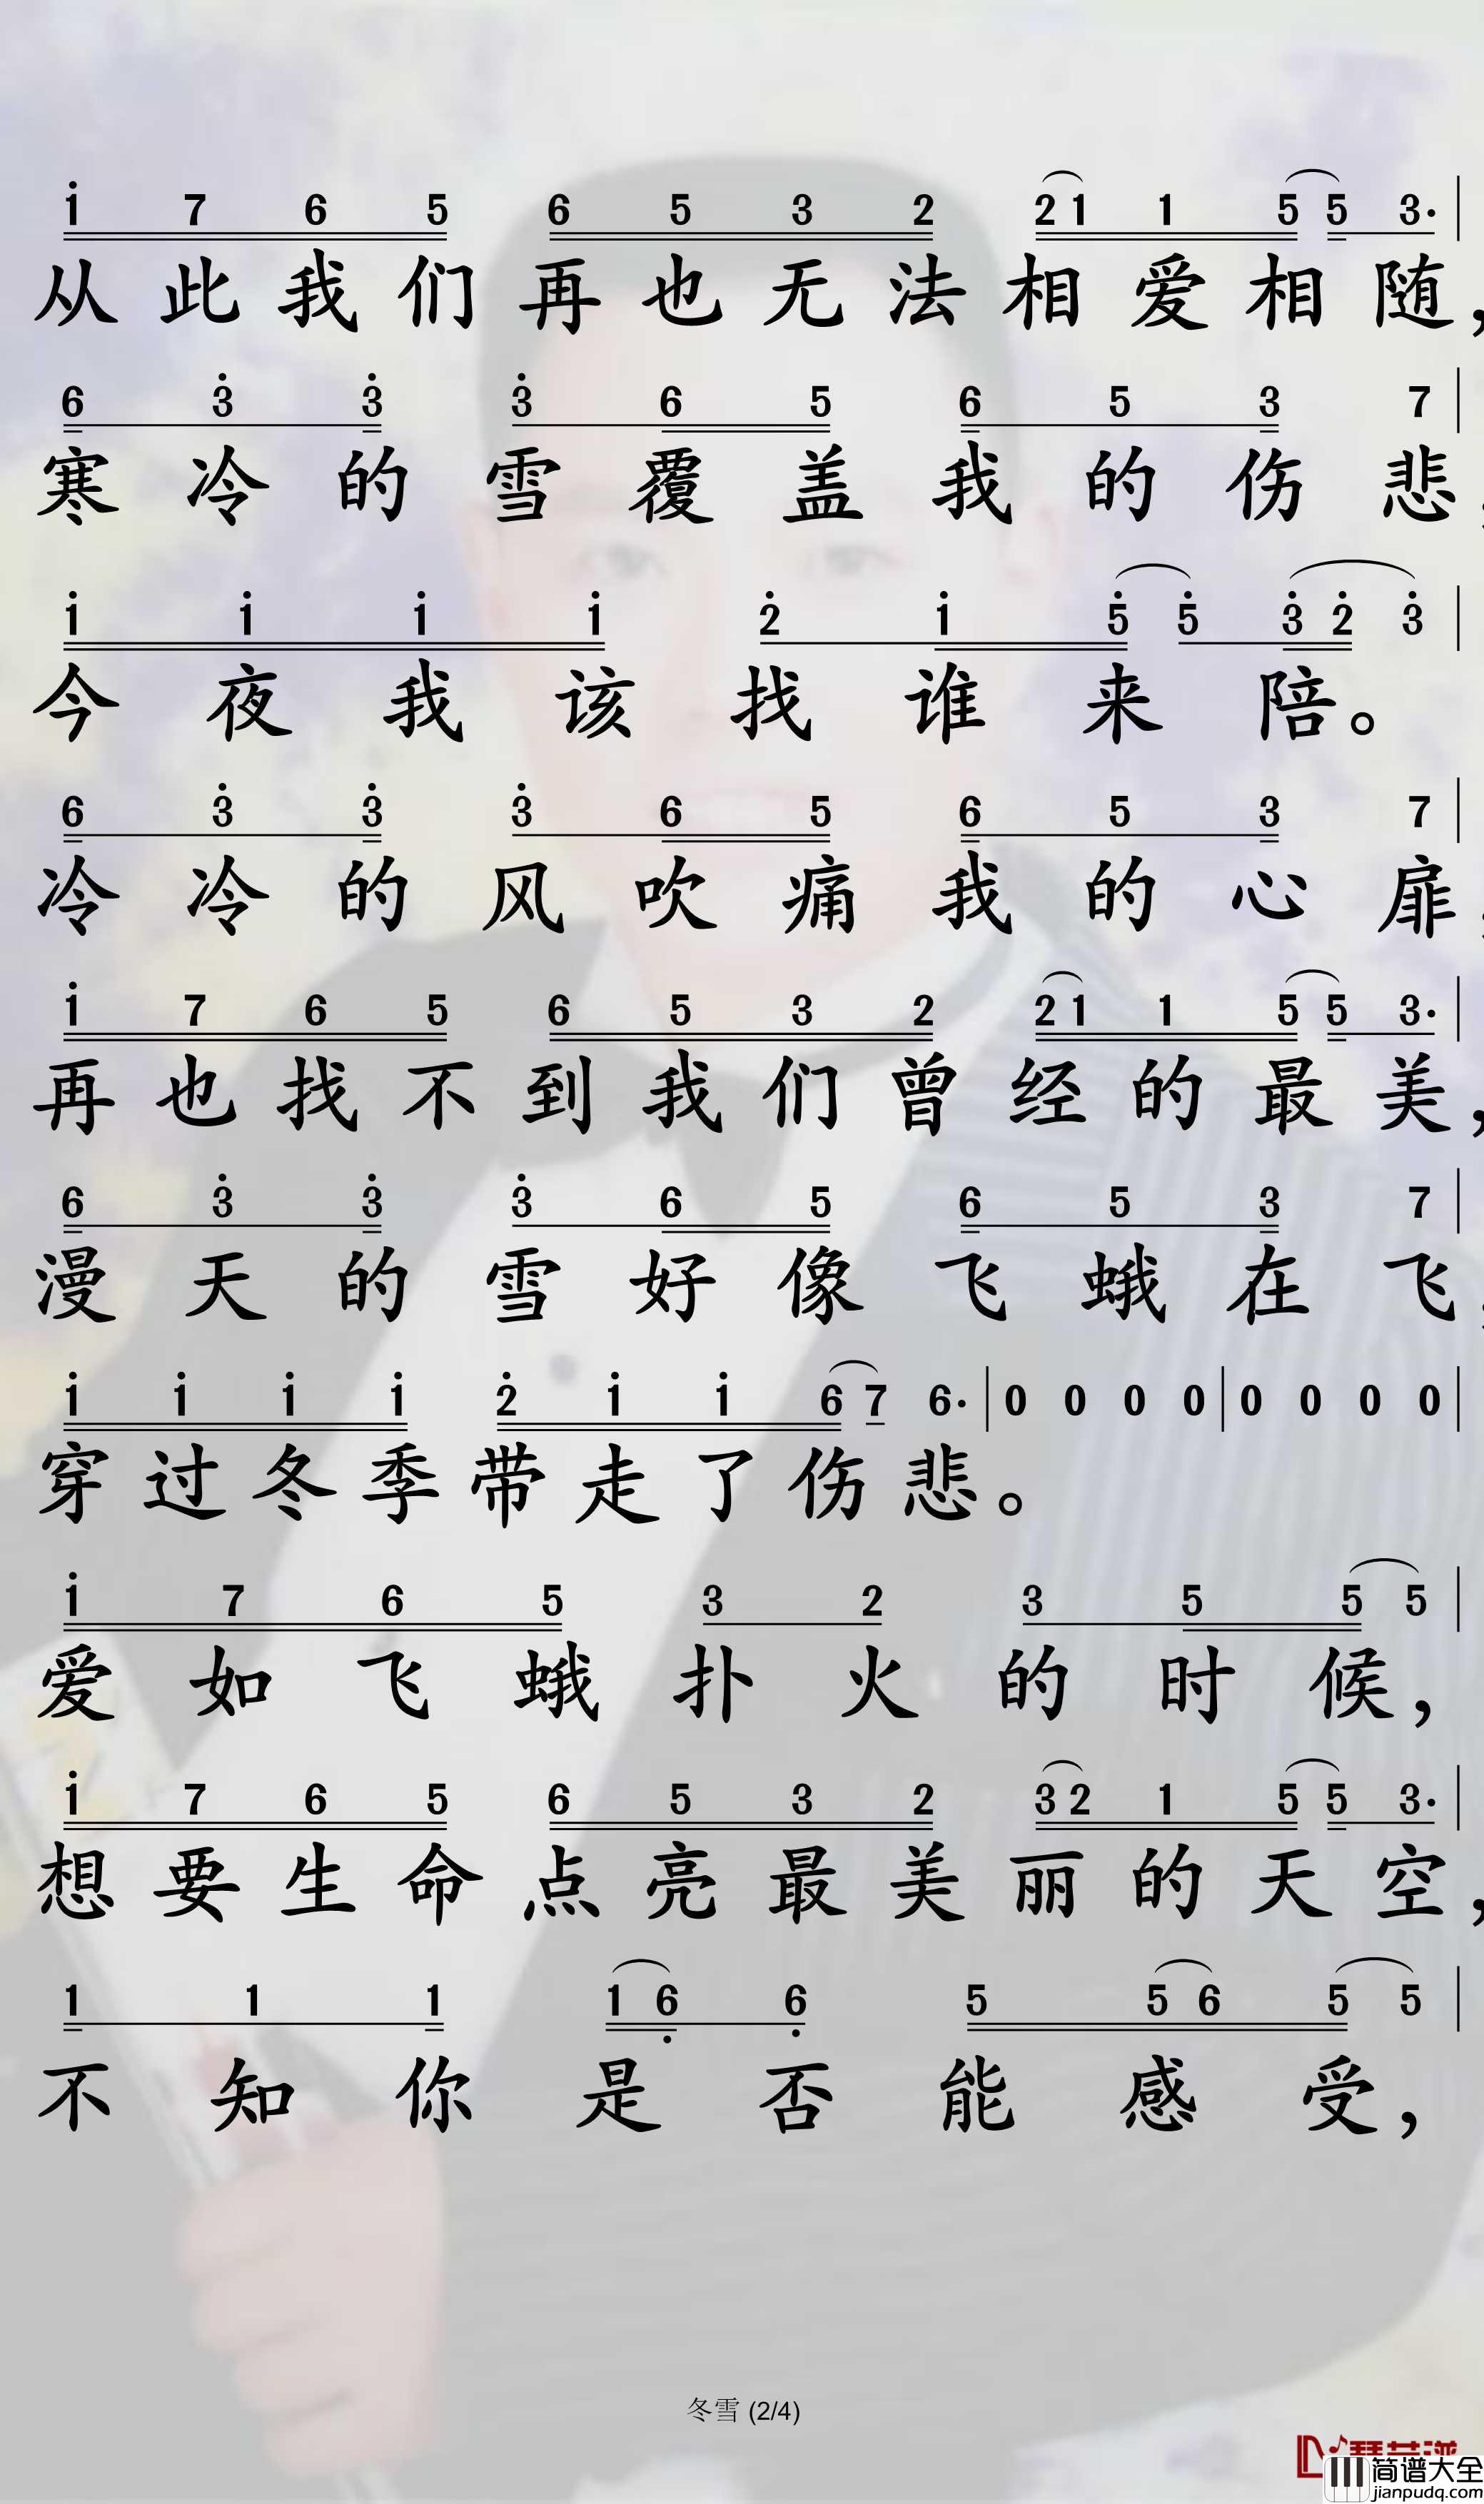 i 7 6 5 6 5 3 2 2 1 1 5 5 3. |
从此我们再也无法相爱相随，
6 3 3 3 6 5 6 5 3 7 |
寒冷的雪覆盖我的伤悲，
i i i i 2 i 5 5 3 2 3 |
今夜我该找谁来陪。
6 3 3 3 6 5 6 5 3 7 |
冷冷的风吹痛我的心扉，
i 7 6 5 6 5 3 2 2 1 1 5 5 3. |
再也找不到我们曾经的最美，
6 3 3 3 6 5 6 5 3 7 |
漫天的雪好像飞蛾在飞，
i i i i 2 i i 6 7 6. | 0 0 0 0 | 0 0 0 0 |
穿过冬季带走了伤悲。
i 7 6 5 3 2 3 5 5 5 |
爱如飞蛾扑火的时候，
i 7 6 5 6 5 3 2 3 2 1 5 5 3. |
想要生命点亮最美丽的天空，
1 1 1 1 6 6 5 5 6 5 5 |
不知你是否能感受，
冬雪 (2/4)
简谱大全
jianpudq.com